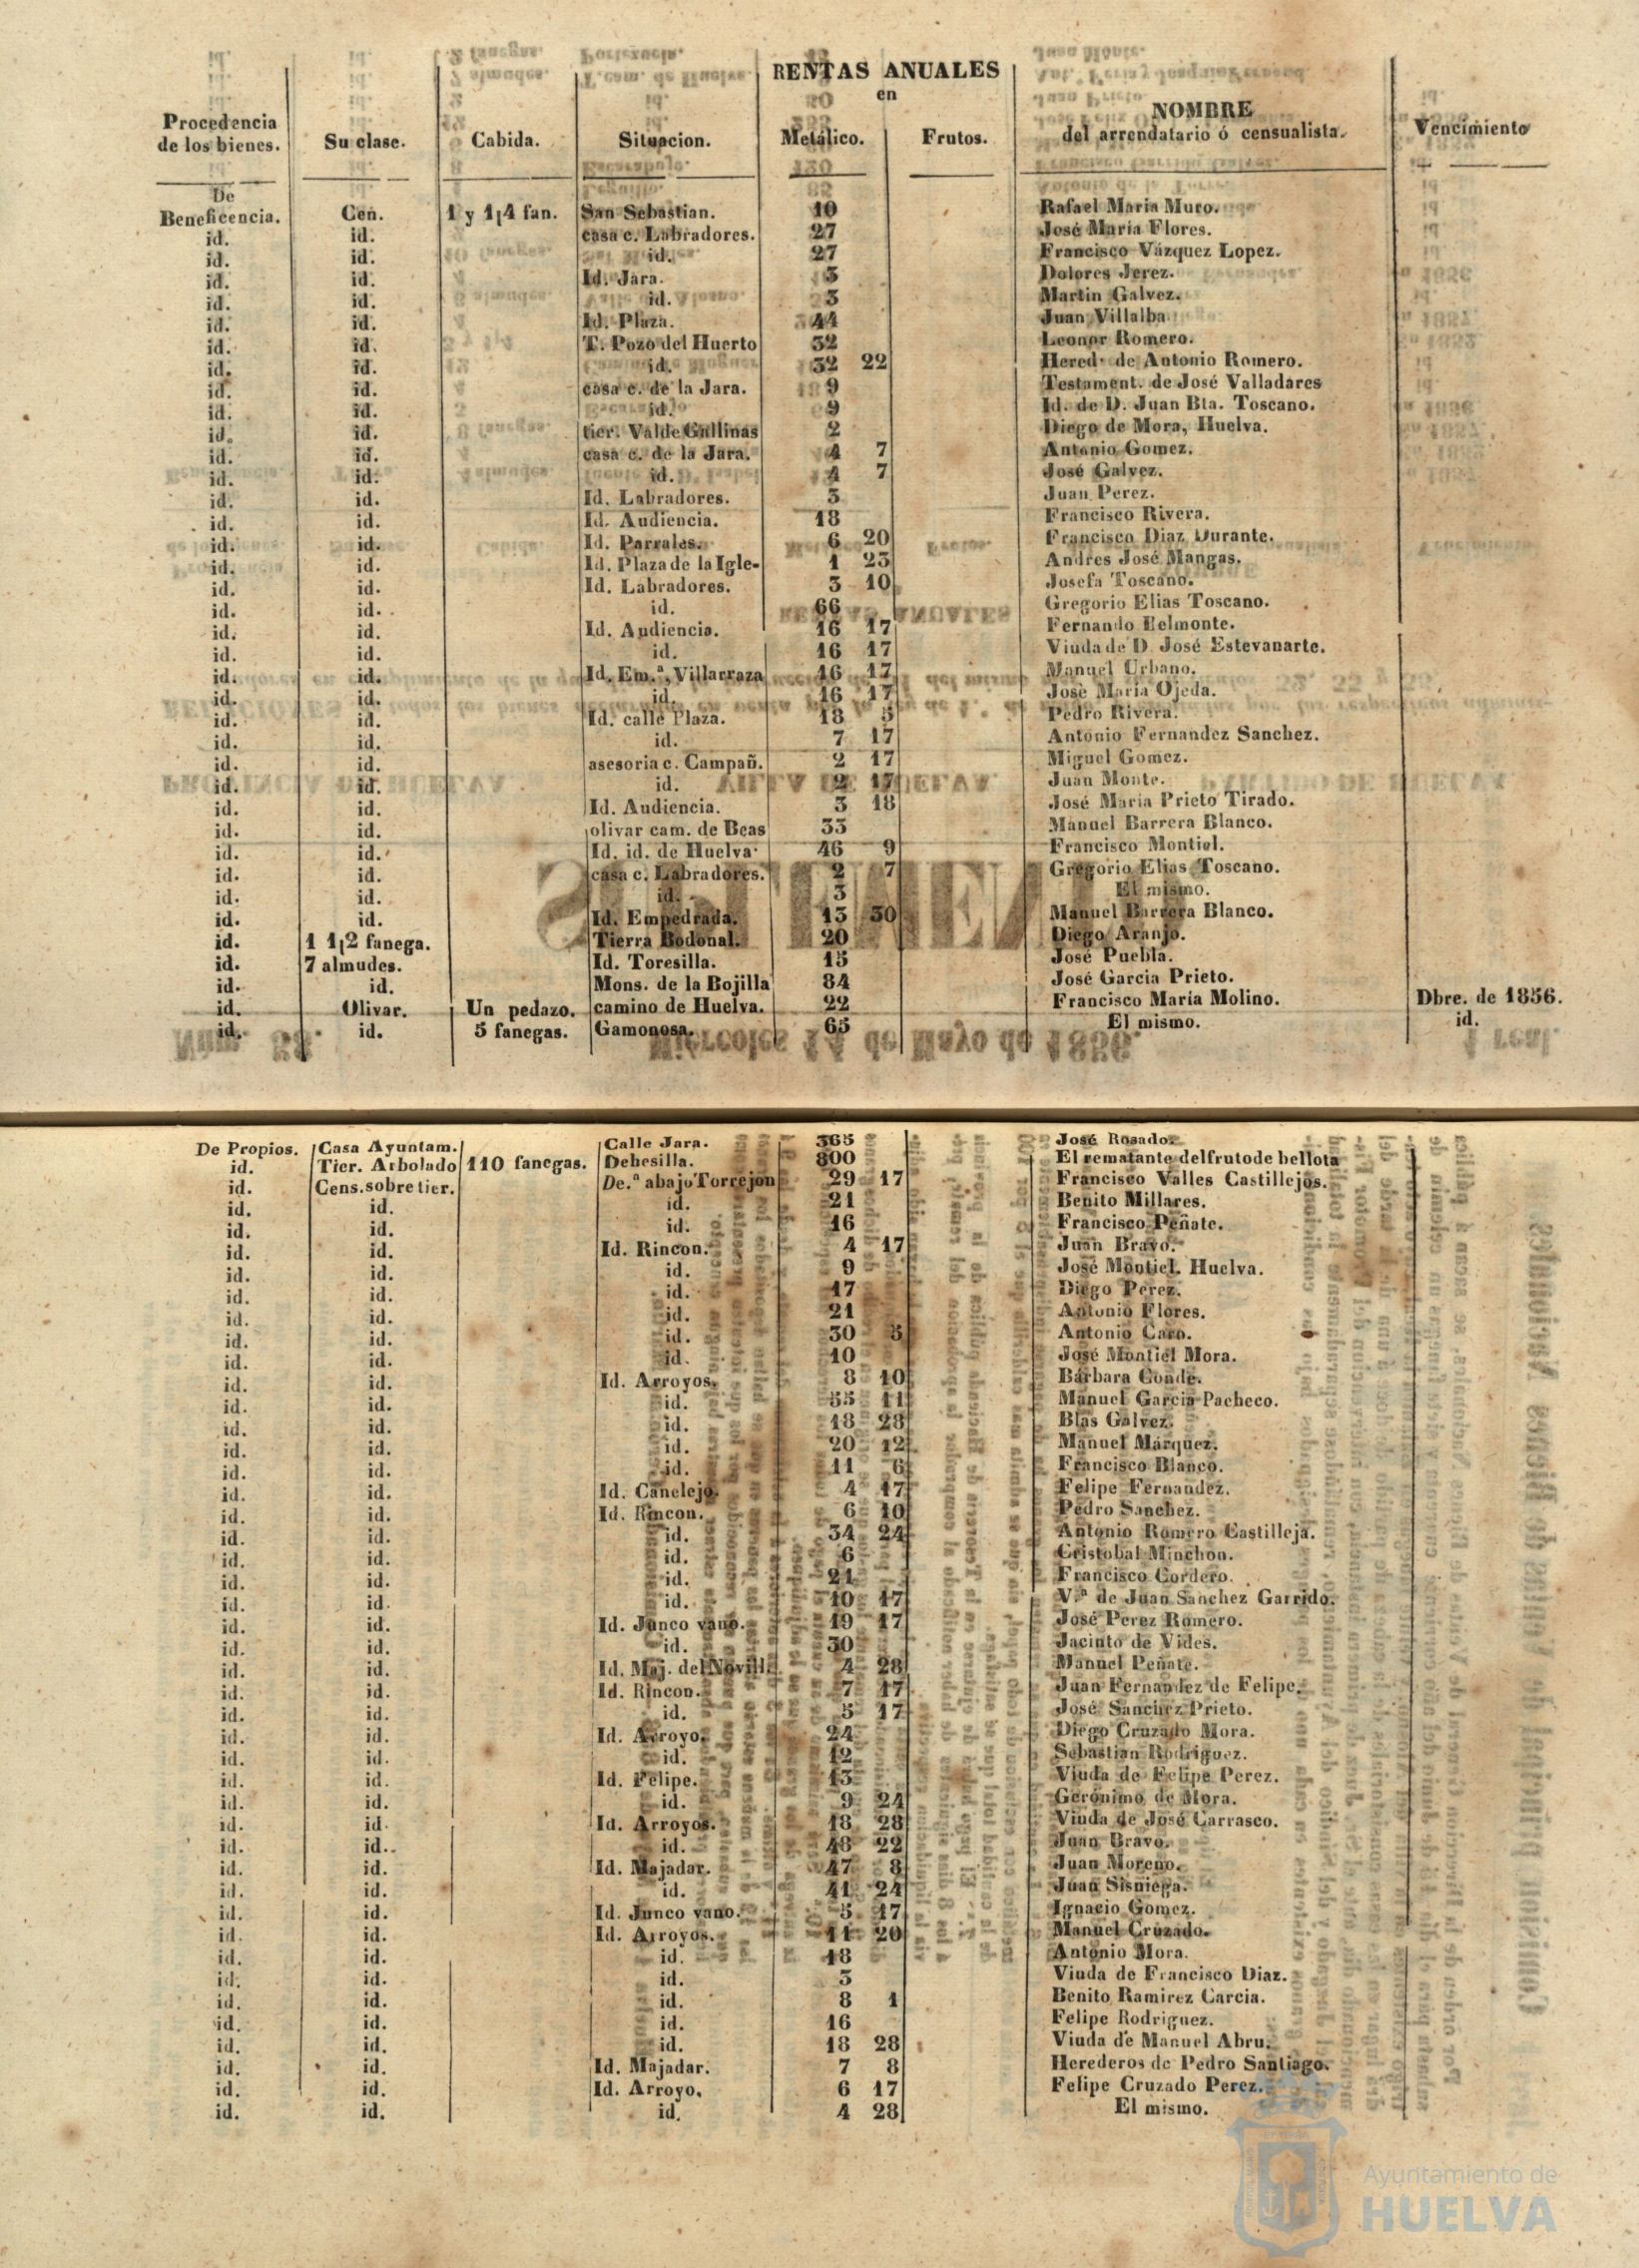 RENTAS ANUALES
en
Procedencia de los bienes. Su clase. Cabida. Situacion. Metálico. Frutos. NOMBRE del arrendatario ó censualista. Vencimiento
De
Beneficencia. Cen. 1 y 1,4 fan. San Sebastian. 10 Rafael Maria Muro.
id. id. casa c. Labradores. 27 José Maria Flores.
id. id. id. 27 Francisco Vázquez Lopez.
id. id. Id. Jara. 3 Dolores Jerez.
id. id. id. 3 Martin Galvez.
id. id. Id. Plaza. 44 Juan Villalba
id. id. T. Pozo del Huerto 32 Leonor Romero.
id. id. id. 32 22 Hered. de Antonio Romero.
id. id. casa c. de la Jara. 9 Testament. de José Valladares
id. id. id. 9 Id. de D. Juan Bta. Toscano.
id. id. tier. Valde Gallinas 2 Diego de Mora, Huelva.
id. id. casa c. de la Jara. 4 7 Antonio Gomez.
id. id. id. 4 7 José Galvez.
id. id. Id. Labradores. 3 Juan Perez.
id. id. Id. Audiencia. 18 Francisco Rivera.
id. id. Id. Parrales. 6 20 Francisco Diaz Durante.
id. id. Id. Plaza de la Igle- 1 23 Andres José Mangas.
id. id. Id. Labradores. 3 10 Josefa Toscano.
id. id. id. 66 Gregorio Elias Toscano.
id. id. Id. Audiencia. 16 17 Fernando Belmonte.
id. id. id. 16 17 Viuda de D. José Estevanarte.
id. id. Id. Em.ª, Villarraza 16 17 Manuel Urbano.
id. id. id. 16 17 José Maria Ojeda.
id. id. Id. calle Plaza. 18 5 Pedro Rivera.
id. id. id. 7 17 Antonio Fernandez Sanchez.
id. id. asesoria c. Campañ. 2 17 Miguel Gomez.
id. id. id. 2 17 Juan Monte.
id. id. Id. Audiencia. 3 18 José Maria Prieto Tirado.
id. id. olivar cam. de Beas 33 Manuel Barrera Blanco.
id. id. Id. id. de Huelva 46 9 Francisco Montiel.
id. id. casa c. Labradores. 2 7 Gregorio Elias Toscano.
id. id. id. 3 El mismo.
id. id. Id. Empedrada. 13 30 Manuel Barrera Blanco.
id. 1 1,2 fanega. Tierra Bodonal. 20 Diego Aranjo.
id. 7 almudes. Id. Toresilla. 15 José Puebla.
id. id. Mons. de la Bojilla 84 José Garcia Prieto.
id. Olivar. Un pedazo. camino de Huelva. 22 Francisco Maria Molino. Dbre. de 1856.
id. id. 5 fanegas. Gamonosa. 65 El mismo. id.
De Propios. Casa Ayuntam. Calle Jara. 365 José Rosado.
id. Tier. Arbolado 110 fanegas. Dehesilla. 800 El rematante del fruto de bellota
id. Cens. sobre tier. De.ª abajo Torrejon 29 17 Francisco Valles Castillejos.
id. id. id. 21 Benito Millares.
id. id. id. 16 Francisco Peñate.
id. id. Id. Rincon. 4 17 Juan Bravo.
id. id. id. 9 José Montiel. Huelva.
id. id. id. 17 Diego Perez.
id. id. id. 21 Antonio Flores.
id. id. id. 30 5 Antonio Caro.
id. id. id. 10 José Montiel Mora.
id. id. Id. Arroyos. 8 10 Bárbara Conde.
id. id. id. 55 11 Manuel Garcia Pacheco.
id. id. id. 18 28 Blas Galvez.
id. id. id. 20 12 Manuel Márquez.
id. id. id. 11 6 Francisco Blanco.
id. id. Id. Canclejo. 4 17 Felipe Fernandez.
id. id. Id. Rincon. 6 10 Pedro Sanchez.
id. id. id. 34 24 Antonio Romero Castilleja.
id. id. id. 6 Cristobal Minchon.
id. id. id. 21 Francisco Cordero.
id. id. id. 10 17 V.ª de Juan Sanchez Garrido.
id. id. Id. Junco vano. 19 17 José Perez Romero.
id. id. id. 30 Jacinto de Vides.
id. id. Id. Maj. del Novill. 4 28 Manuel Peñate.
id. id. Id. Rincon. 7 17 Juan Fernandez de Felipe.
id. id. id. 5 17 José Sanchez Prieto.
id. id. Id. Arroyo. 24 Diego Cruzado Mora.
id. id. id. 12 Sebastian Rodriguez.
id. id. Id. Felipe. 13 Viuda de Felipe Perez.
id. id. id. 9 24 Gerónimo de Mora.
id. id. Id. Arroyos. 18 28 Viuda de José Carrasco.
id. id. id. 48 22 Juan Bravo.
id. id. Id. Majadar. 47 8 Juan Moreno.
id. id. id. 41 24 Juan Sisniega.
id. id. Id. Junco vano. 5 17 Ignacio Gomez.
id. id. Id. Arroyos. 11 20 Manuel Cruzado.
id. id. id. 18 Antonio Mora.
id. id. id. 3 Viuda de Francisco Diaz.
id. id. id. 8 1 Benito Ramirez Garcia.
id. id. id. 16 Felipe Rodriguez.
id. id. id. 18 28 Viuda de Manuel Abru.
id. id. Id. Majadar. 7 8 Herederos de Pedro Santiago.
id. id. Id. Arroyo. 6 17 Felipe Cruzado Perez.
id. id. id. 4 28 El mismo.
Ayuntamiento de
HUELVA